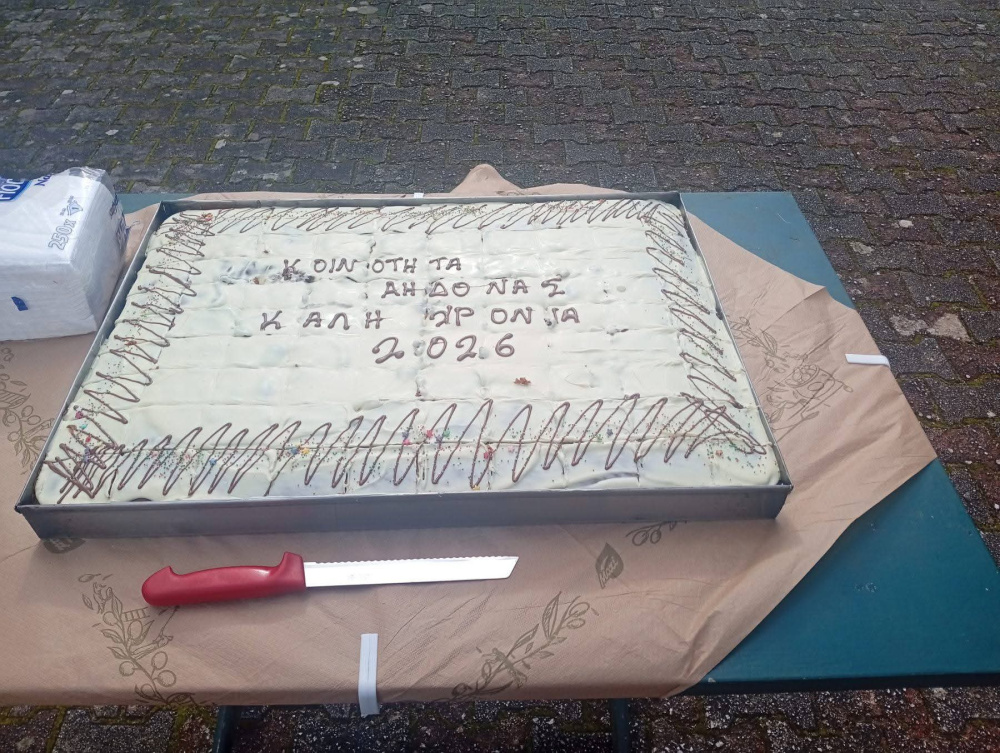 ΚΟΙΝΟΤΗΤΑ
ΑΗΔΟΝΑΣ
ΚΑΛΗ ΧΡΟΝΙΑ
2026